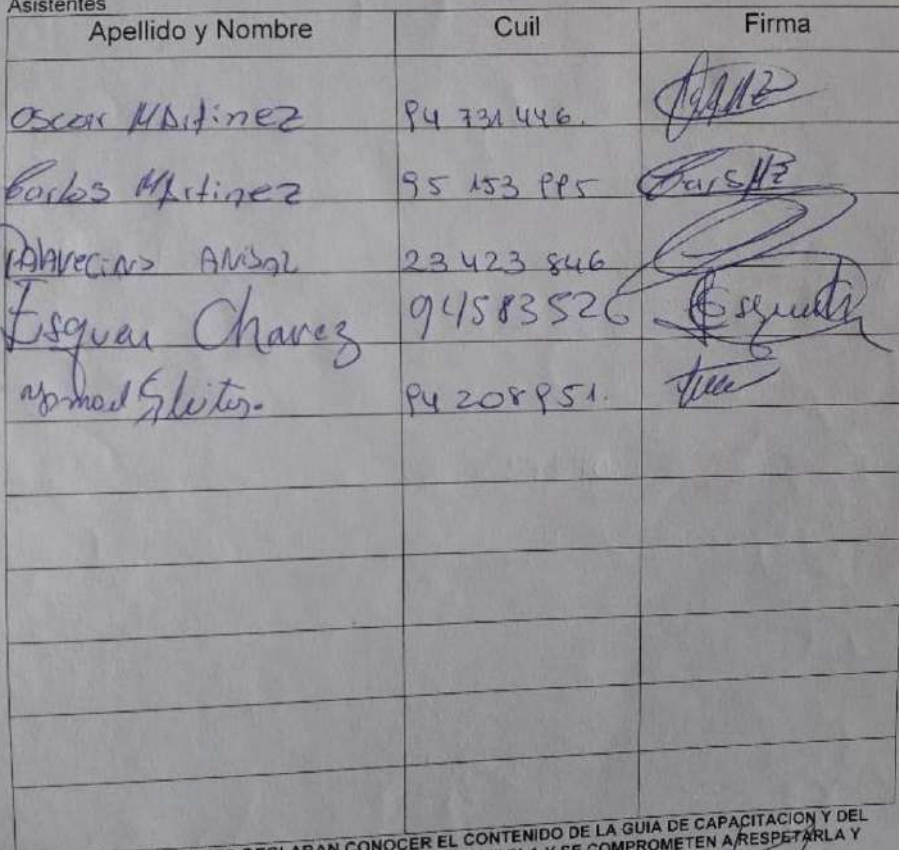 Asistentes
Apellido y Nombre Cuil Firma
Oscar Martinez 94 731 446.
Carlos Martinez 95 153 995
Palavecino Anibal 23 423 846
Esquer Chavez 94583526
94 208 951.
CONOCER EL CONTENIDO DE LA GUIA DE CAPACITACION Y DEL
Y SE COMPROMETEN A RESPETARLA Y